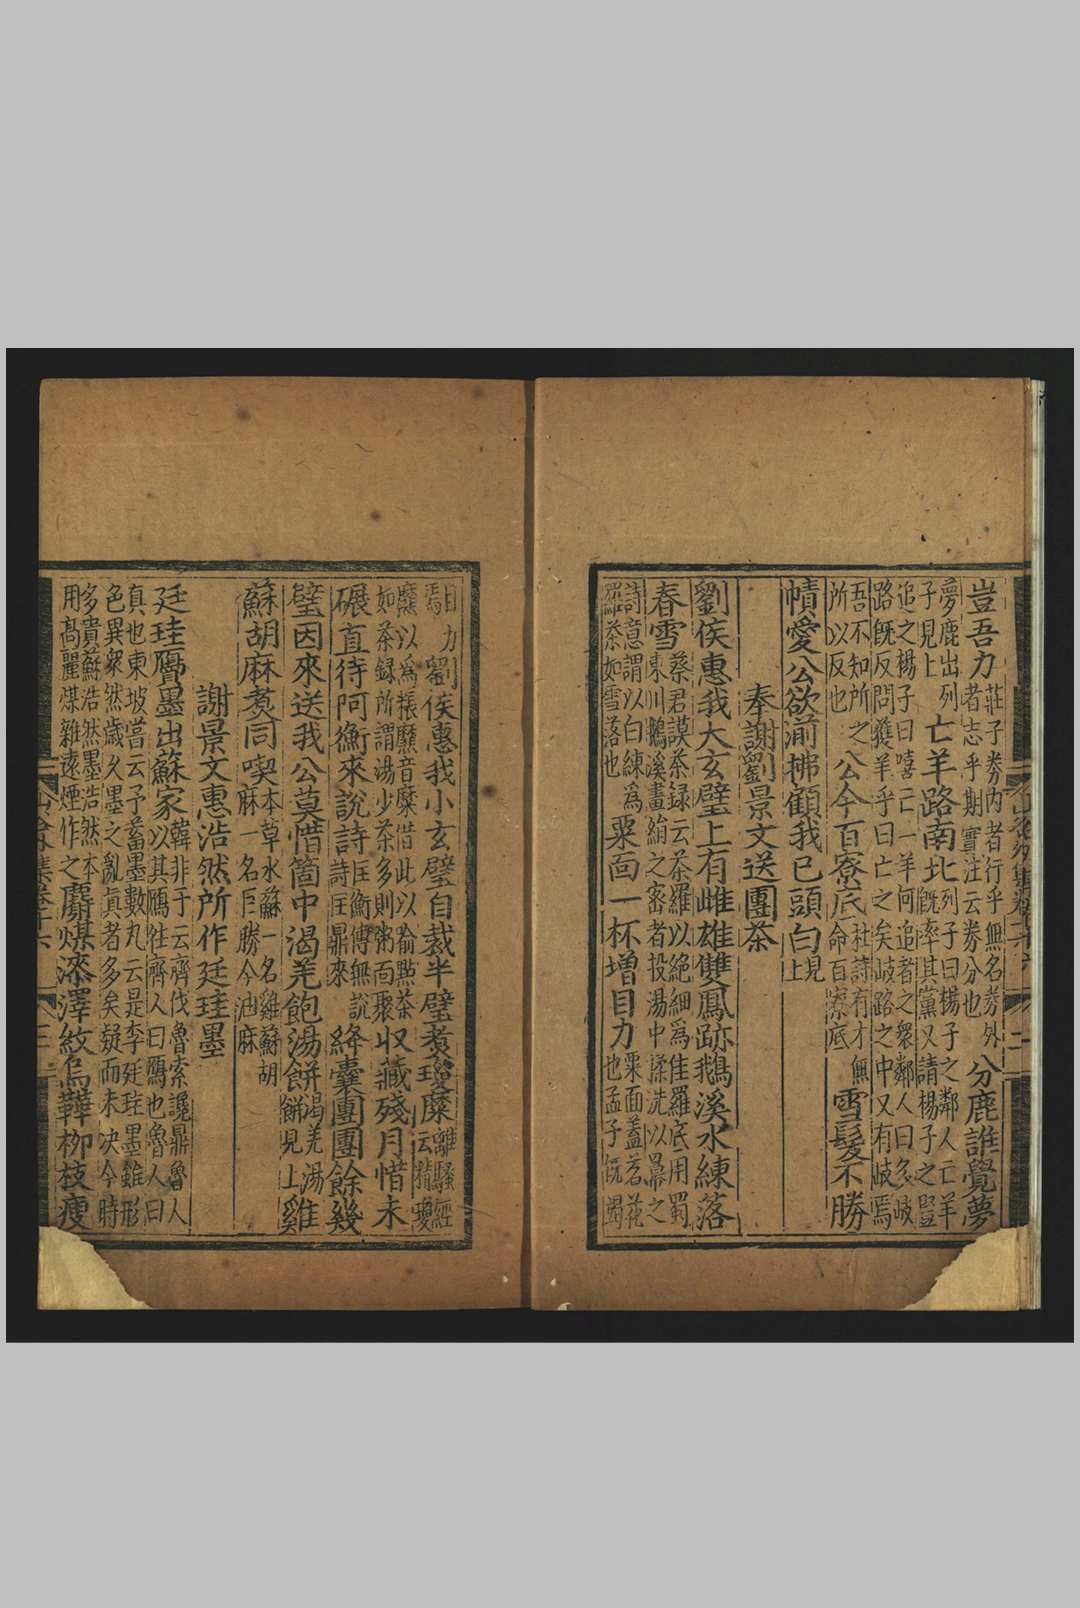 豈吾力莊子券內者行乎無名券外
者志乎期實注云券分也八分鹿誰覺夢
夢鹿出列
子見上亡羊路南北列子曰楊子之鄰人亡羊
既率其黨又請楊子之豎
追之楊子曰嘻亡一羊何追者之衆鄰人曰多岐
路既反問獲羊乎曰亡之矣岐路之中又有岐焉
吾不知所之
所以反也公今百寮底杜詩有才無
命百寮底雪髮不勝
幘愛公欲湔拂顧我已頭白見
上
奉謝劉景文送團茶
劉侯惠我大玄璧上有雌雄雙鳳跡鵝溪水練落
春雪蔡君謨茶録云茶羅以絕細爲佳羅底用蜀
東川鵝溪畫絹之密者投湯中揉洗以冪之
詩意謂以白練爲
羅茶如雪落也粟面一杯增目力粟面蓋茗花
也孟子既竭
目力
焉劉侯惠我小玄璧自裁半璧煮瓊糜離騷經
云精瓊
爢以爲粻爢音糜借此以喻點茶
如茶録所謂湯少茶多則粥面聚収藏殘月惜未
碾直待阿衡來說詩匡衡傳無說
詩匡鼎來絳囊團團餘幾
璧因來送我公莫惜箇中渴羌飽湯餅渴羌湯
餅見上雞
蘇胡麻煑同喫本草水蘇一名雞蘇胡
麻一名巨勝今油麻
謝景文惠浩然所作廷珪墨
廷珪贗墨出蘇家韓非子云齊伐魯索讒鼎魯人
以其鴈徃齊人曰鴈也魯人曰
真也東坡嘗云予蓄墨數丸云是李廷珪墨雖形
色異衆然歲久墨之亂眞者多矣疑而未决今時
多貴蘇浩然墨浩然本
用高麗煤雜遠煙作之麝煤漆澤紋烏韡栁枝瘦